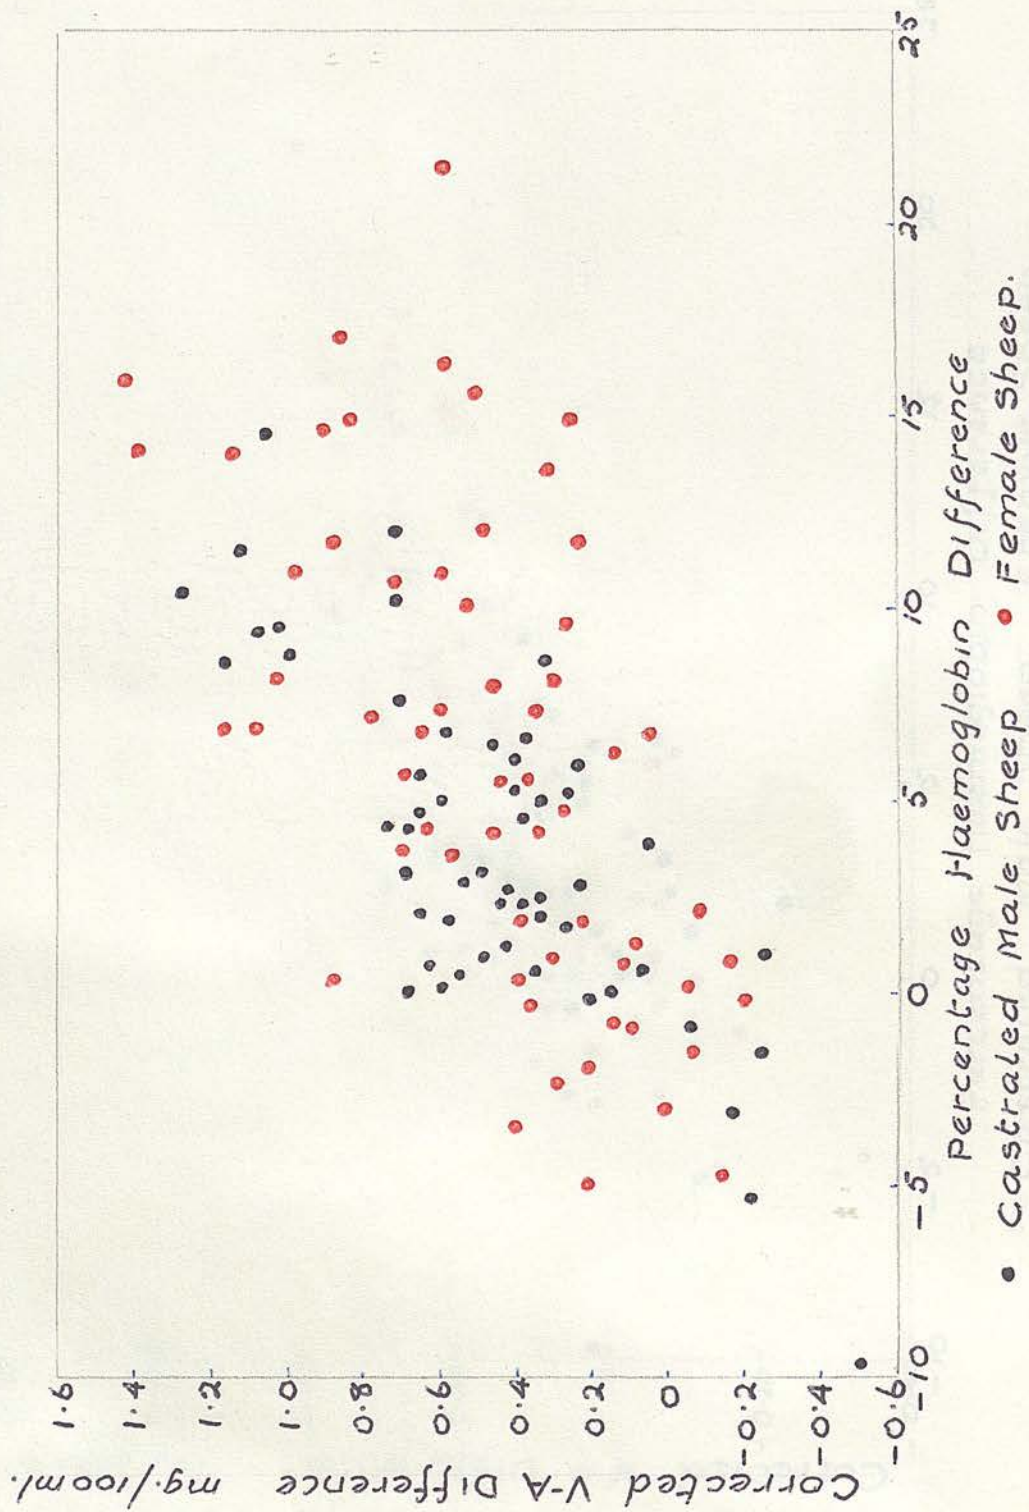 Corrected V-A Difference mg./100ml.
1.6
1.4
1.2
1.0
0.8
0.6
0.4
0.2
0
-0.2
-0.4
-0.6
-10
-5
0
5
10
15
20
25
Percentage Haemoglobin Difference
• Castraled Male Sheep • Female Sheep.